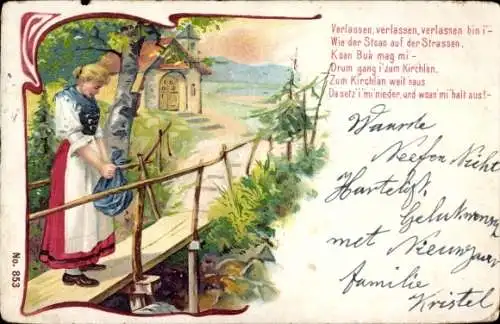 Verlassen, verlassen, verlassen bin i'-
Wie der Stoan auf der Strassen,
Koan Bua mag mi -
Drum gang i' zum Kirchlan,
Zum Kirchlan weit naus
Da setz' i' mi' nieder, und woan' mi' halt aus! -
Waarde
Neef en Nicht
Hartelijk
Gelukwensch
met Nieuwjaar
familie
Kristel
No. 853